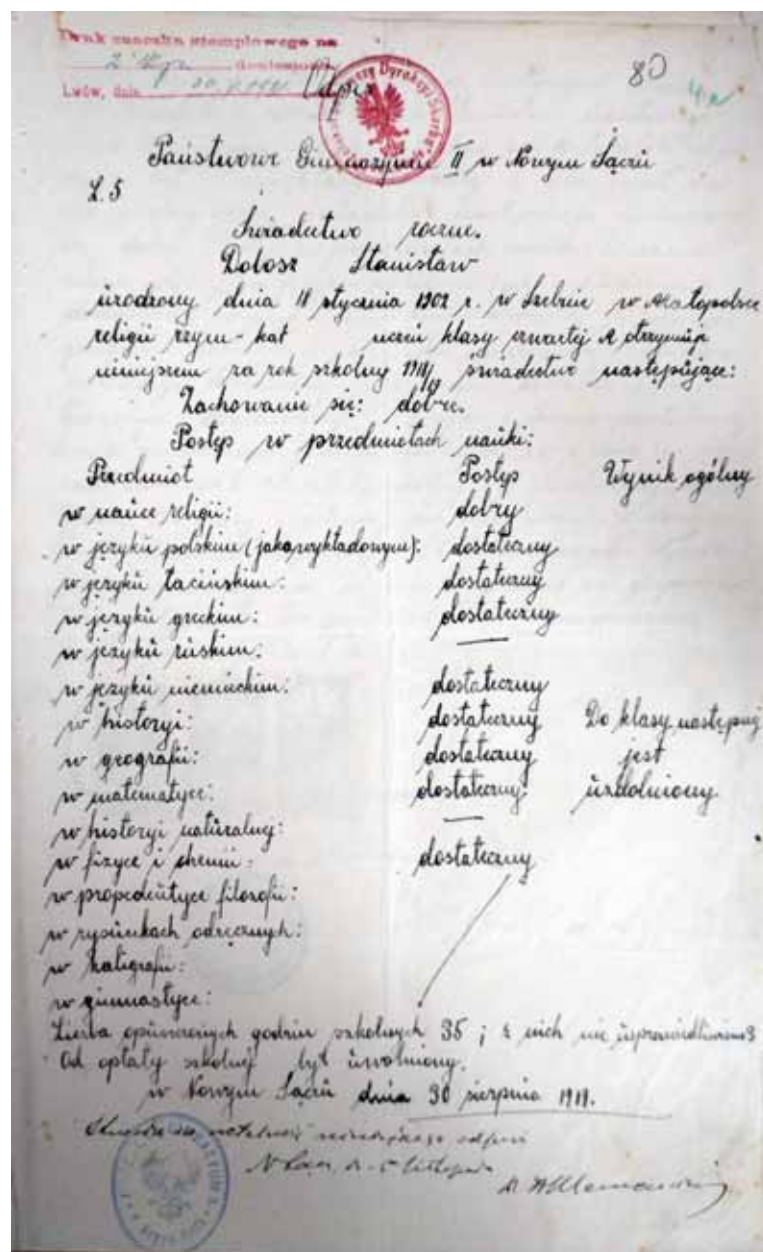 Brak znaczka stemplowego na
Lwów, dnia
Odpis
80
4 a
Państwowe Gimnazyum II w Nowym Sączu
L. 5
Świadectwo roczne.
Dobosz Stanisław
urodzony dnia 18 stycznia 1902 r. w w Małopolsce
religii rzym-kat uczeń klasy czwartej A otrzymuje
niniejszem za rok szkolny 1918/19 świadectwo następujące:
Zachowanie się: dobre.
Postęp w przedmiotach nauki:
Przedmiot Postęp Wynik ogólny
w nauce religii: dobry
w języku polskim (jako wykładowym): dostateczny
w języku łacińskim: dostateczny
w języku greckim: dostateczny
w języku ruskim: —
w języku niemieckim: dostateczny
w historyi: dostateczny Do klasy następnej
w geografii: dostateczny jest
w matematyce: dostateczny uzdolniony
w historyi naturalnej: —
w fizyce i chemii: dostateczny
w propedeutyce filozofii:
w rysunkach odręcznych:
w kaligrafii:
w gimnastyce:
Liczba opuszczonych godzin szkolnych 35 ; z nich nie usprawiedliwiono 3
Od opłaty szkolnej był uwolniony.
w Nowym Sączu dnia 30 sierpnia 1919.
niniejszego odpisu
N Sącz, d. 5 listopada